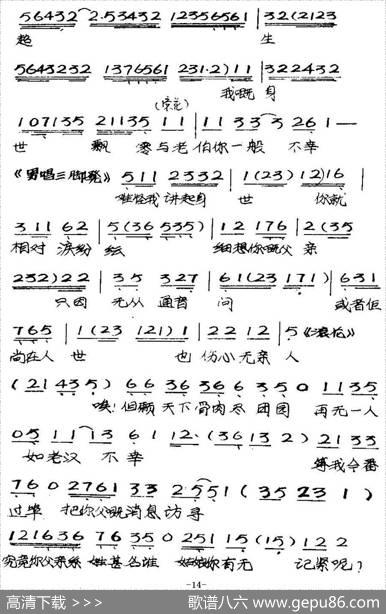 56432 2·53432 12356561 | 32(2123
起 生
5643232 1376561 231·2)11 | 3222432
我既 身
107135 21135 11 | 11 33 3 261—
世 飘 零与老 伯你一般 不幸
511 2332 | 123 12)16
难怪我 讲起身 世 你就
311 62 | 5(36 535) | 12 176 | 2(35
相对 泪纷 纭 细想你既父 亲
232)22 | 35 327 | 61(23 171) | 631
只因 无从 通音 问 或者佢
765 | 1(23 121)1 | 22 12 | 5
尚在人 世 也 伤心无亲 人
(21435) 66 36366 35 0 1135
唉!但愿 天下骨肉尽 团圆 再无一人
05 11 13 61 12·(3613 2) 2133
如老汉 不幸 等我今番
76 0 2761 33 2551(35 23 1)
过埠 把你父既消息访寻
121636 76 35 0 251 15(15) 12 2
究竟你父亲系 姓甚名谁 姑娘你有无 记紧呢?
-14-
高清下载 >>>
歌谱八六 www.gepu86.com